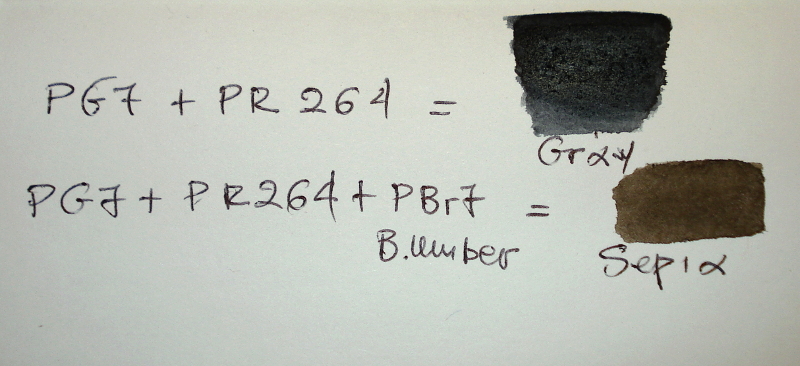 PG7 + PR 264 =
Gray
PG7 + PR264 + PBr7 =
B.umber
Sepia